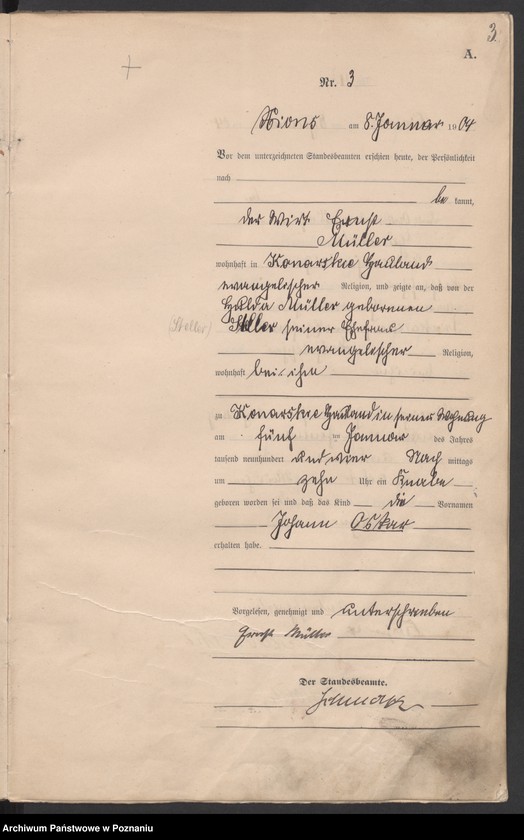 3
A.
Nr. 3
Xions am 8. Januar 1904
Vor dem unterzeichneten Standesbeamten erschien heute, der Persönlichkeit
nach
be kannt,
der Wirt Ernst
Müller
wohnhaft in Konarskie Hauland
evangelischer Religion, und zeigte an, daß von der
Hulda Müller geborenen
(Steller) Steller seiner Ehefrau
evangelischer Religion,
wohnhaft bei ihm
zu Konarskie Hauland in seiner Wohnung
am fünften Januar des Jahres
tausend neunhundert und vier Nach mittags
um zehn Uhr ein Knabe
geboren worden sei und daß das Kind die Vornamen
Johann Oskar
erhalten habe.
Vorgelesen, genehmigt und unterschrieben
Ernst Müller
Der Standesbeamte.
Archiwum Państwowe w Poznaniu